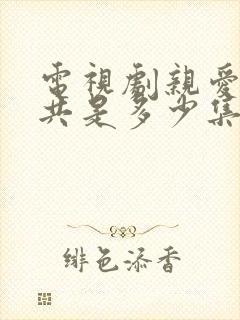 電視劇親愛
共是多少集
緋色添香